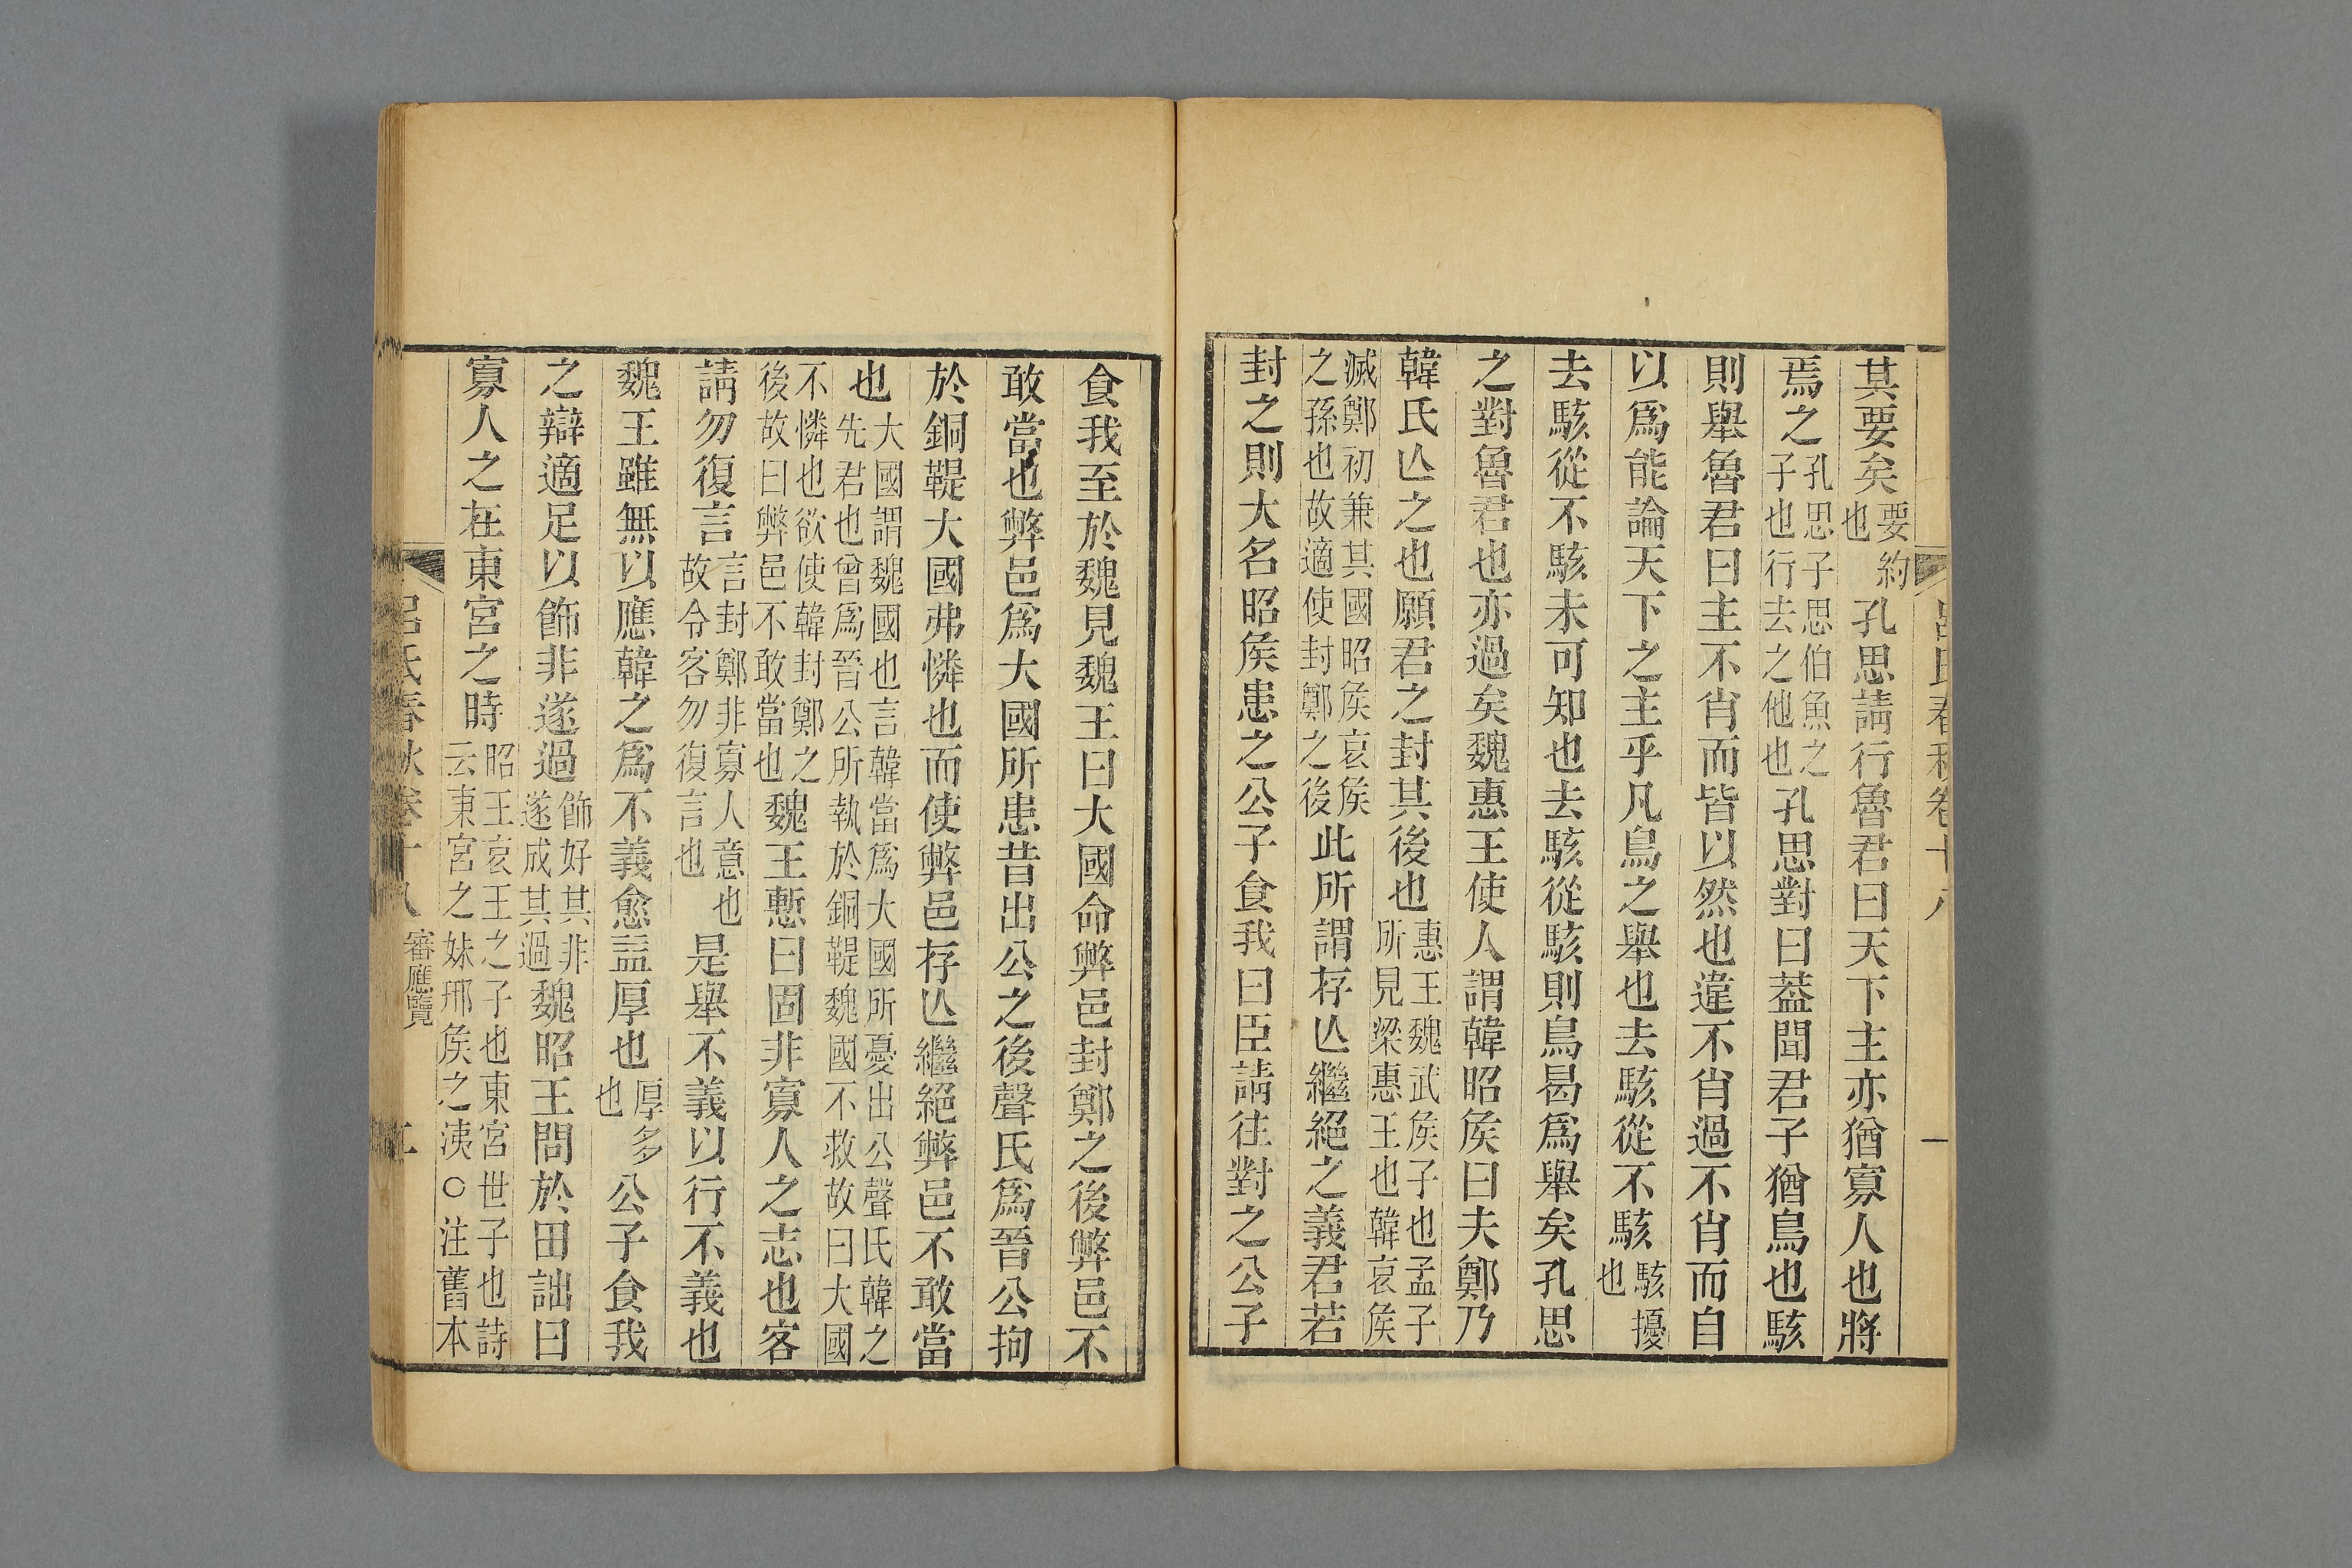 其要矣要約也孔思請行魯君曰天下主亦猶寡人也將
焉之孔思子思伯魚之子也行去之他也孔思對曰葢聞君子猶鳥也駭
則舉魯君曰主不肖而皆以然也違不肖過不肖而自
以爲能論天下之主乎凡鳥之舉也去駭從不駭駭擾也
去駭從不駭未可知也去駭從駭則鳥曷爲舉矣孔思
之對魯君也亦過矣魏惠王使人謂韓昭矦曰夫鄭乃
韓氏亾之也願君之封其後也惠王魏武矦子也孟子所見梁惠王也韓哀矦
滅鄭初兼其國昭矦哀矦之孫也故適使封鄭之後此所謂存亾繼絕之義君若
封之則大名昭矦患之公子食我曰臣請往對之公子
食我至於魏見魏王曰大國命弊邑封鄭之後弊邑不
敢當也弊邑爲大國所患昔出公之後聲氏爲晉公拘
於銅鞮大國弗憐也而使弊邑存亾繼絕弊邑不敢當
也大國謂魏國也言韓當爲大國所憂出公聲氏韓之先君也曾爲晉公所執於銅鞮魏國不救故曰大國
不憐也欲使韓封鄭之後故曰弊邑不敢當也魏王慙曰固非寡人之志也客
請勿復言言封鄭非寡人意也故令客勿復言也是舉不義以行不義也
魏王雖無以應韓之爲不義愈益厚也厚多也公子食我
之辯適足以飾非遂過飾好其非遂成其過魏昭王問於田詘曰
寡人之在東宮之時昭王哀王之子也東宮世子也詩云東宮之妹邢矦之洟○注舊本
呂氏春秋卷十八 審應覽